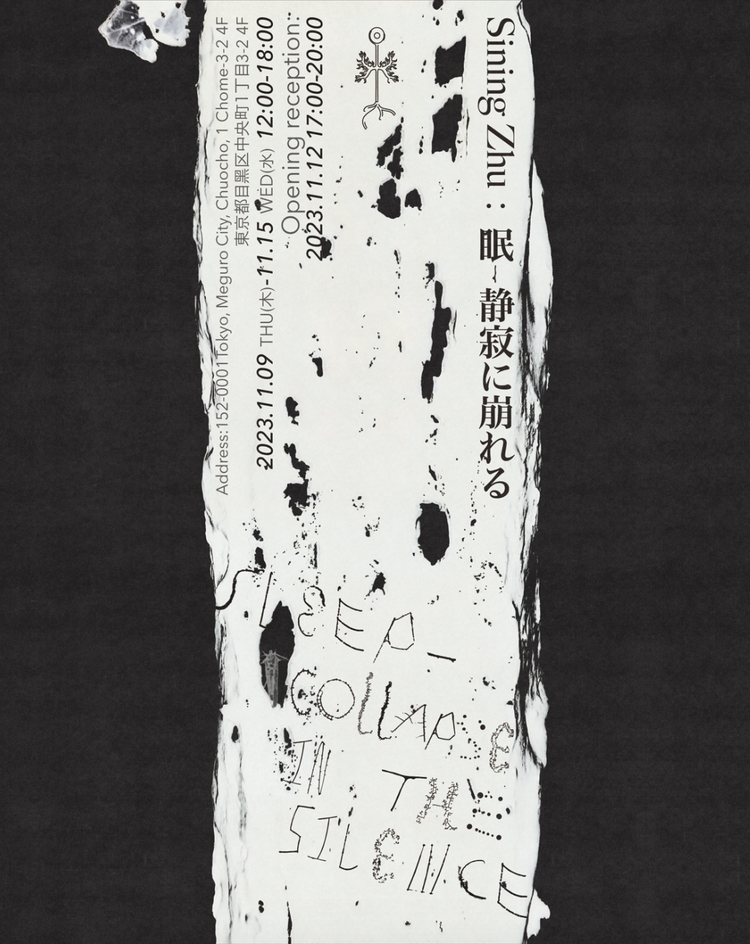 Sining Zhu：眠 - 静寂に崩れる
Opening reception:
2023.11.12 17:00-20:00
2023.11.09 THU(木)-11.15 WED(水) 12:00-18:00
東京都目黒区中央町1丁目3-2 4F
Address:152-0001Tokyo, Meguro City, Chuocho, 1 Chome-3-2 4F
SLEEP-
COLLAPSE
IN THE
SILENCE